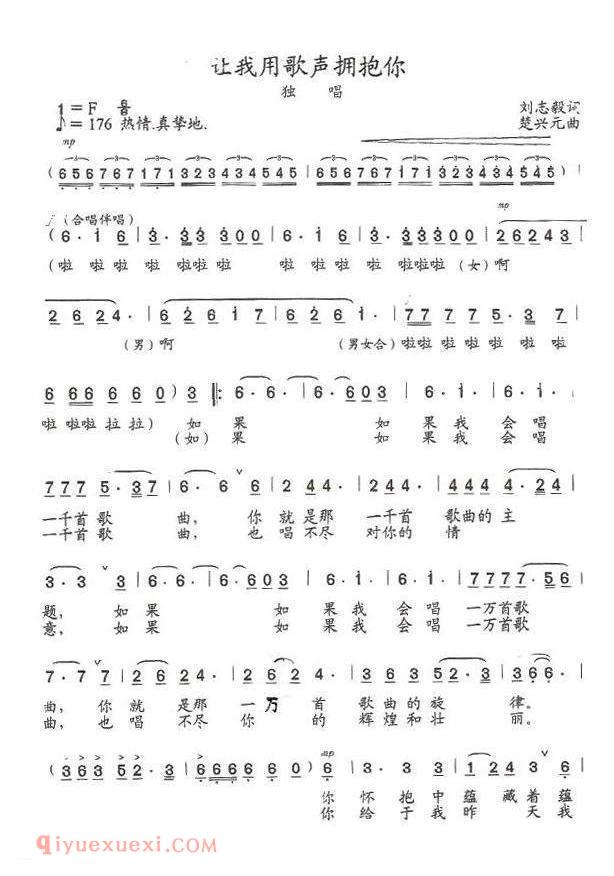 让我用歌声拥抱你
独 唱
1=F 6/8
刘志毅词
♪=176 热情.真挚地.
楚兴元曲
mp
(656767171323434545 | 656767171323434545) |
f (合唱伴唱)
mp
(6·16 | 3·33300 | 6·16 | 3·33300) | 26243 |
(啦 啦 啦 啦 啦啦 啦 啦 啦 啦 啦 啦啦啦 (女)啊
2624· | 626i7 | 626i | 77775·37 |
(男)啊 (男女合)啦啦啦啦啦 啦 啦
6666660) 3 |: 6·6· | 6·6603 | 6·i· | 6·i·i |
啦 啦啦 拉 拉) 如 果 如 果我 会 唱
(如) 果 如 果我 会 唱
7775·37 | 6·66 | 244· | 244· | 4444·24 |
一千首歌 曲, 你 就 是那 一千首 歌曲的 主
一千首歌 曲, 也 唱不尽 对你的 情
3·33 | 6·6· | 6·6603 | 6·i· | 6·i·i | 7777·56 |
题, 如 果 如 果我 会 唱 一万首歌
意, 如 果 如 果我 会 唱 一万首歌
7·77 | 2624· | 6·2· | 363 | 52·3 | 366· |
曲, 你 就 是那 一 万 首 歌 曲的 旋 律。
曲, 也 唱 不尽 你 的 辉 煌和 壮 丽。
mp
(36352·3 | 6666660) 6 | 3·33 | 124 | 336 |
你 怀 抱 中 蕴 藏 着 蕴
你 给 于 我 昨 天 我
qiyuexuexi.com